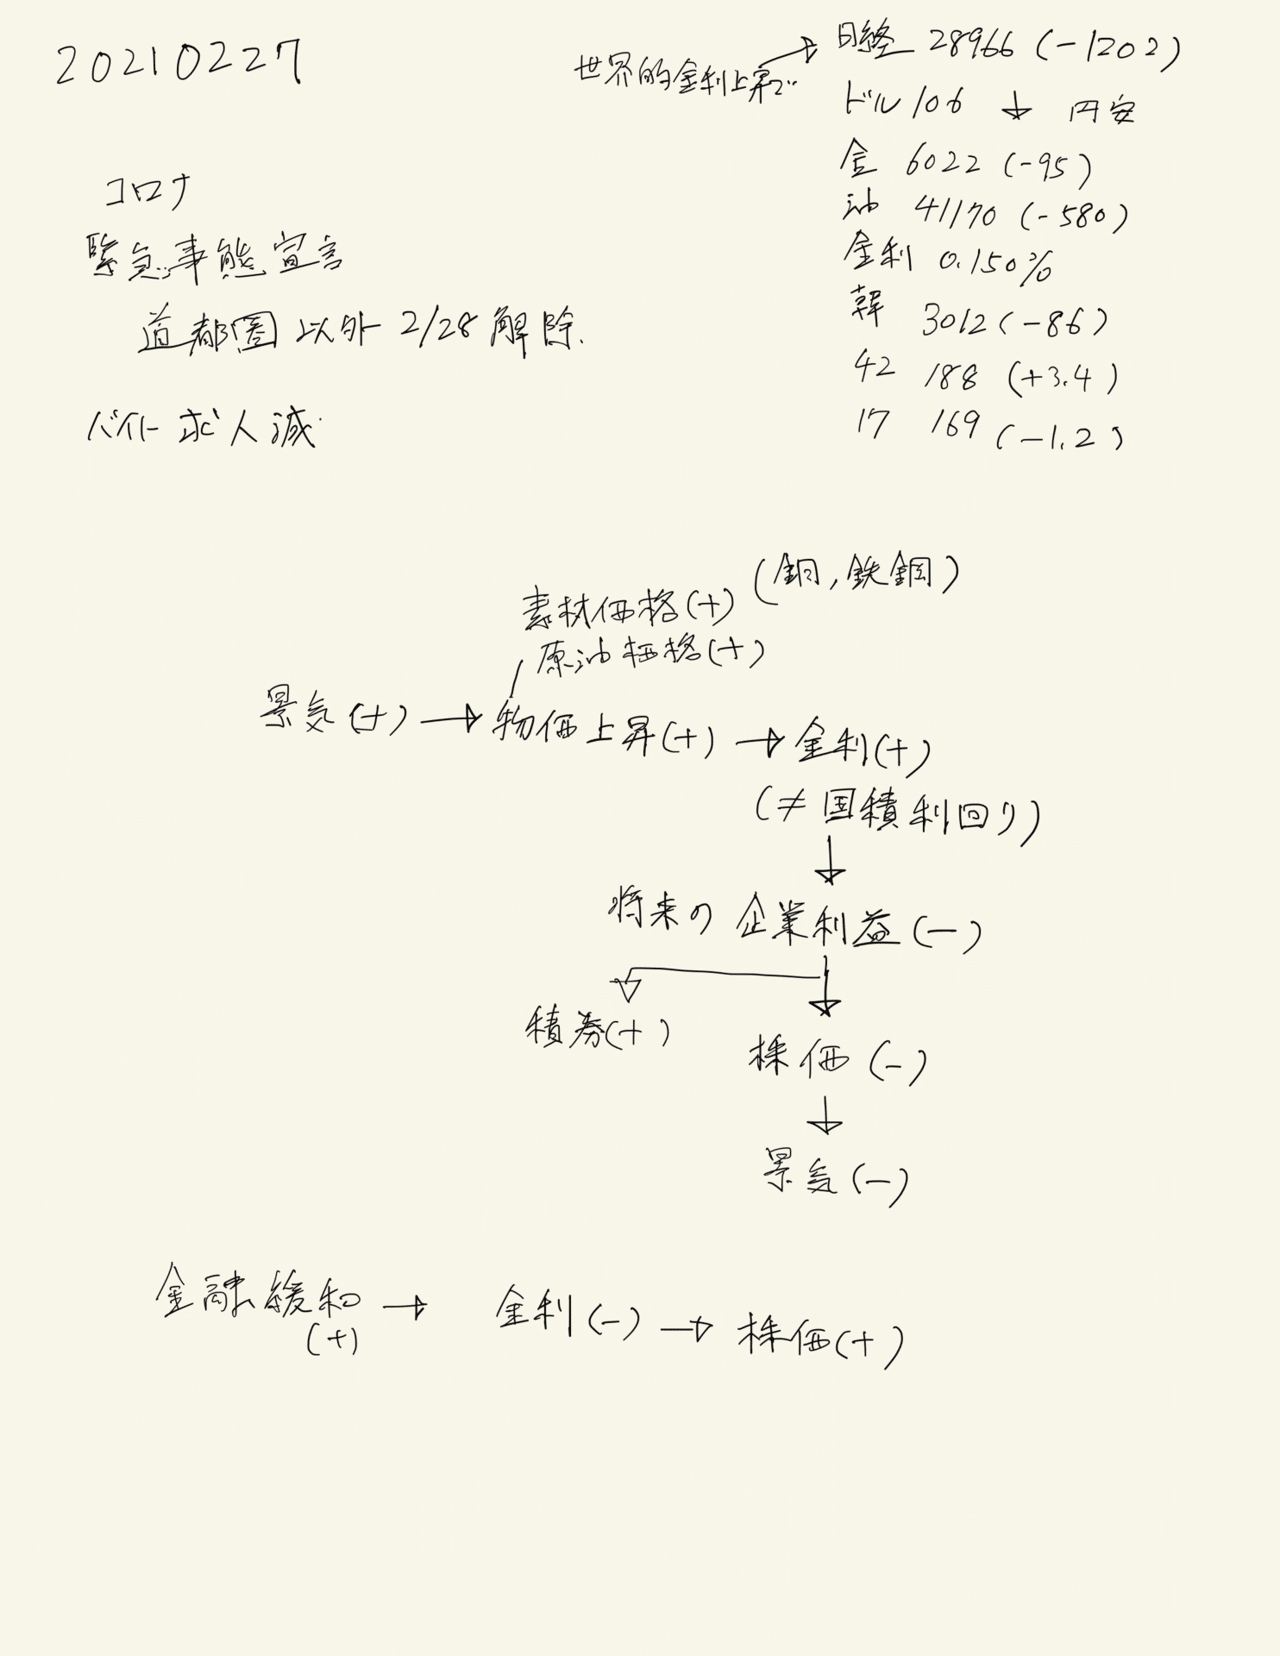 20210227
世界的金利上昇で→日経 28966 (-1202)
ドル106 ↓ 円安
金 6022 (-95)
油 41170 (-580)
金利 0.150%
韓 3012 (-86)
42 188 (+3.4)
17 169 (-1.2)
コロナ
緊急事態宣言
道都圏以外 2/28 解除.
バイト求人減
素材価格(+) (銅,鉄鋼)
原油価格(+)
景気(+) → 物価上昇(+) → 金利(+)
(≠国積利回り)
↓
将来の企業利益(-)
↓ ↓
積券(+) 株価(-)
↓
景気(-)
金融緩和 → 金利(-) → 株価(+)
(+)